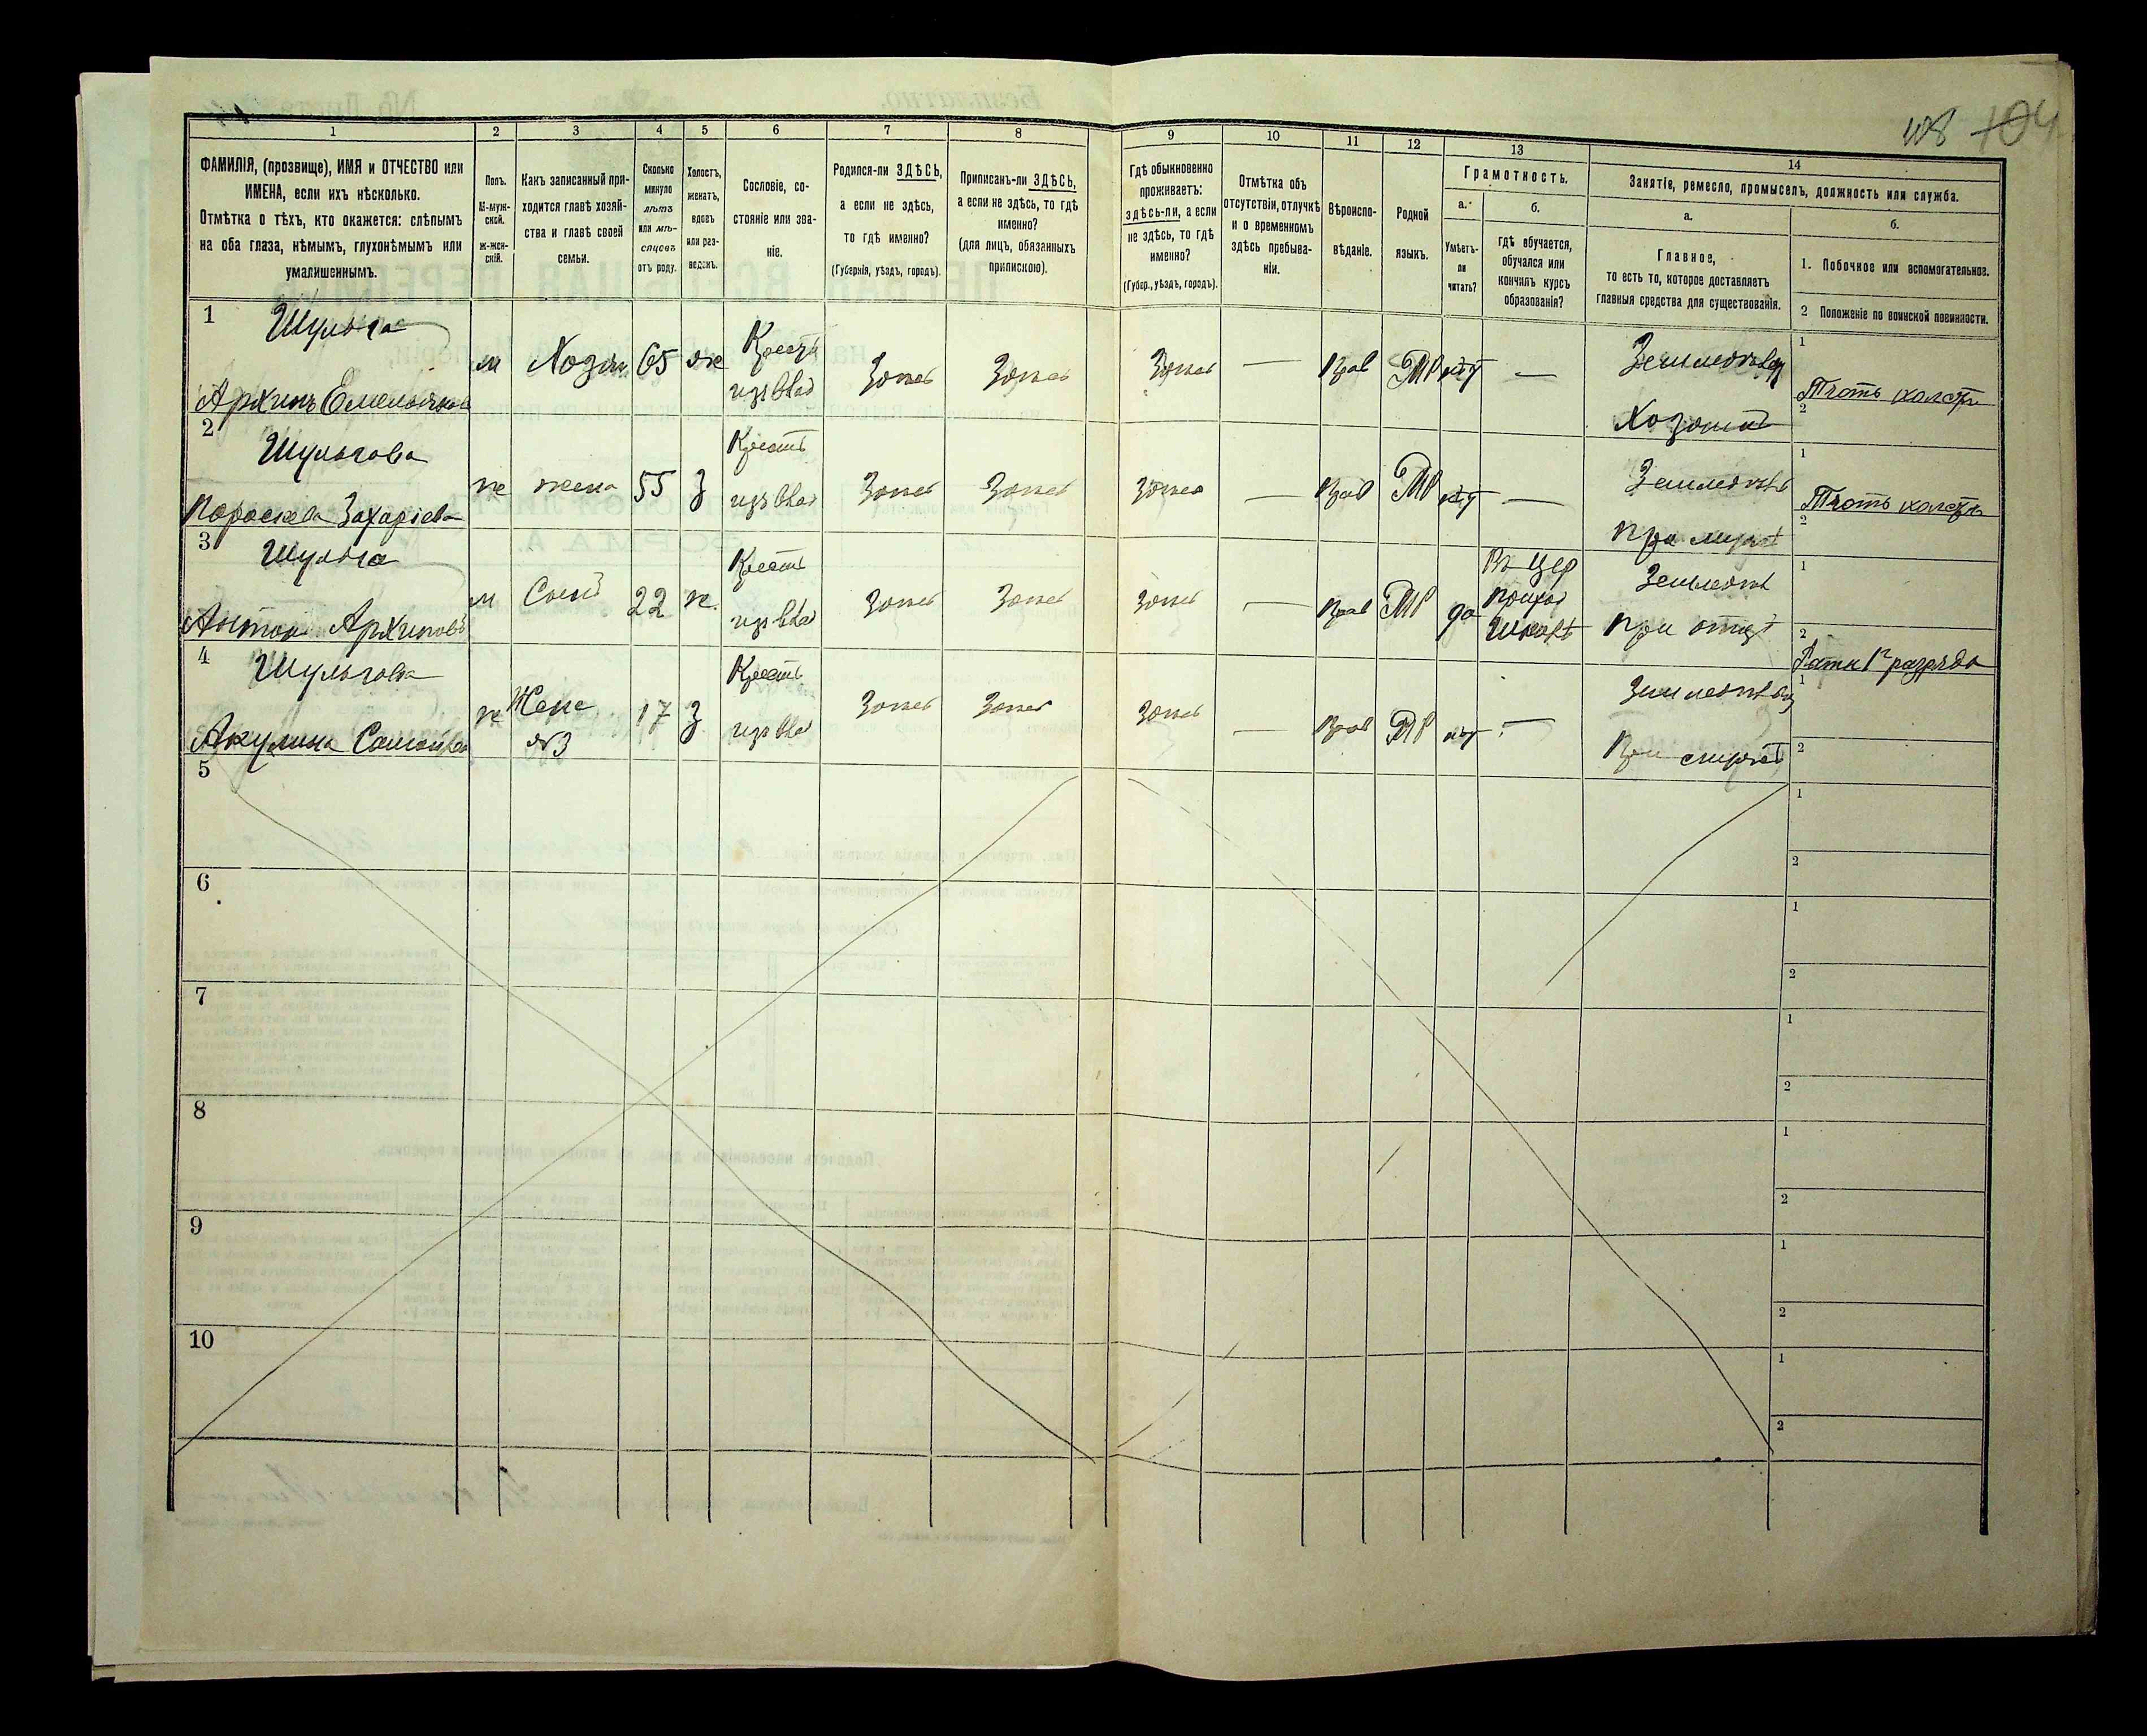 108 104
1 2 3 4 5 6 7 8 9 10 11 12 13 14
ФАМИЛІЯ, (прозвище), ИМЯ и ОТЧЕСТВО или
ИМЕНА, если ихъ нѣсколько.
Отмѣтка о тѣхъ, кто окажется: слѣпымъ
на оба глаза, нѣмымъ, глухонѣмымъ или
умалишеннымъ.
Полъ.
М-муж-
ской.
ж-жен-
скій.
Какъ записанный при-
ходится главѣ хозяй-
ства и главѣ своей
семьи.
Сколько
минуло
лѣтъ
или мѣ-
сяцевъ
отъ роду.
Холостъ,
женатъ,
вдовъ
или раз-
веденъ.
Сословіе, со-
стояніе или зва-
ніе.
Родился-ли ЗДѢСЬ,
а если не здѣсь,
то гдѣ именно?
(Губернія, уѣздъ, городъ).
Приписанъ-ли ЗДѢСЬ,
а если не здѣсь, то гдѣ
именно?
(для лицъ, обязанныхъ
припискою).
Гдѣ обыкновенно
проживаетъ:
здѣсь-ли, а если
не здѣсь, то гдѣ
именно?
(Губер., уѣздъ, городъ).
Отмѣтка объ
отсутствіи, отлучкѣ
и о временномъ
здѣсь пребыва-
ніи.
Вѣроиспо-
вѣданіе.
Родной
языкъ.
Грамотность.
а.
Умѣетъ-
ли
читать?
б.
гдѣ обучается,
обучался или
кончилъ курсъ
образованія?
Занятіе, ремесло, промыселъ, должность или служба.
а.
Главное,
то есть то, которое доставляетъ
главныя средства для существованія.
б.
1. Побочное или вспомогательное.
2 Положеніе по воинской повинности.
1 Шульга
Архипъ Емельянов
м Хозяин 65 ж Крест из вла Здѣсь Здѣсь Здѣсь — Прав МР нѣт —
Земледѣлец
Хозяин
1 Ткать холсты
2
2 Шульгова
Пораскева Захаріева
ж жена 55 З Крест из вла Здѣсь Здѣсь Здѣсь — Прав МР нѣт —
Земледѣл
При мужѣ
1 Ткать холсты
2
3 Шульга
Антон Архиповъ
м Сынъ 22 ж Крест из вла Здѣсь Здѣсь Здѣсь — Прав МР да
Въ цер
приход
школѣ
Земледѣл
При отцѣ
1
2 Ратн 1го разряда
4 Шульгова
Акулина
ж Жена №3 17 З Крест из вла Здѣсь Здѣсь Здѣсь — Прав МР нѣт —
Земледѣлец
При
1
2
5
1
2
6
1
2
7
1
2
8
1
2
9
1
2
10
1
2